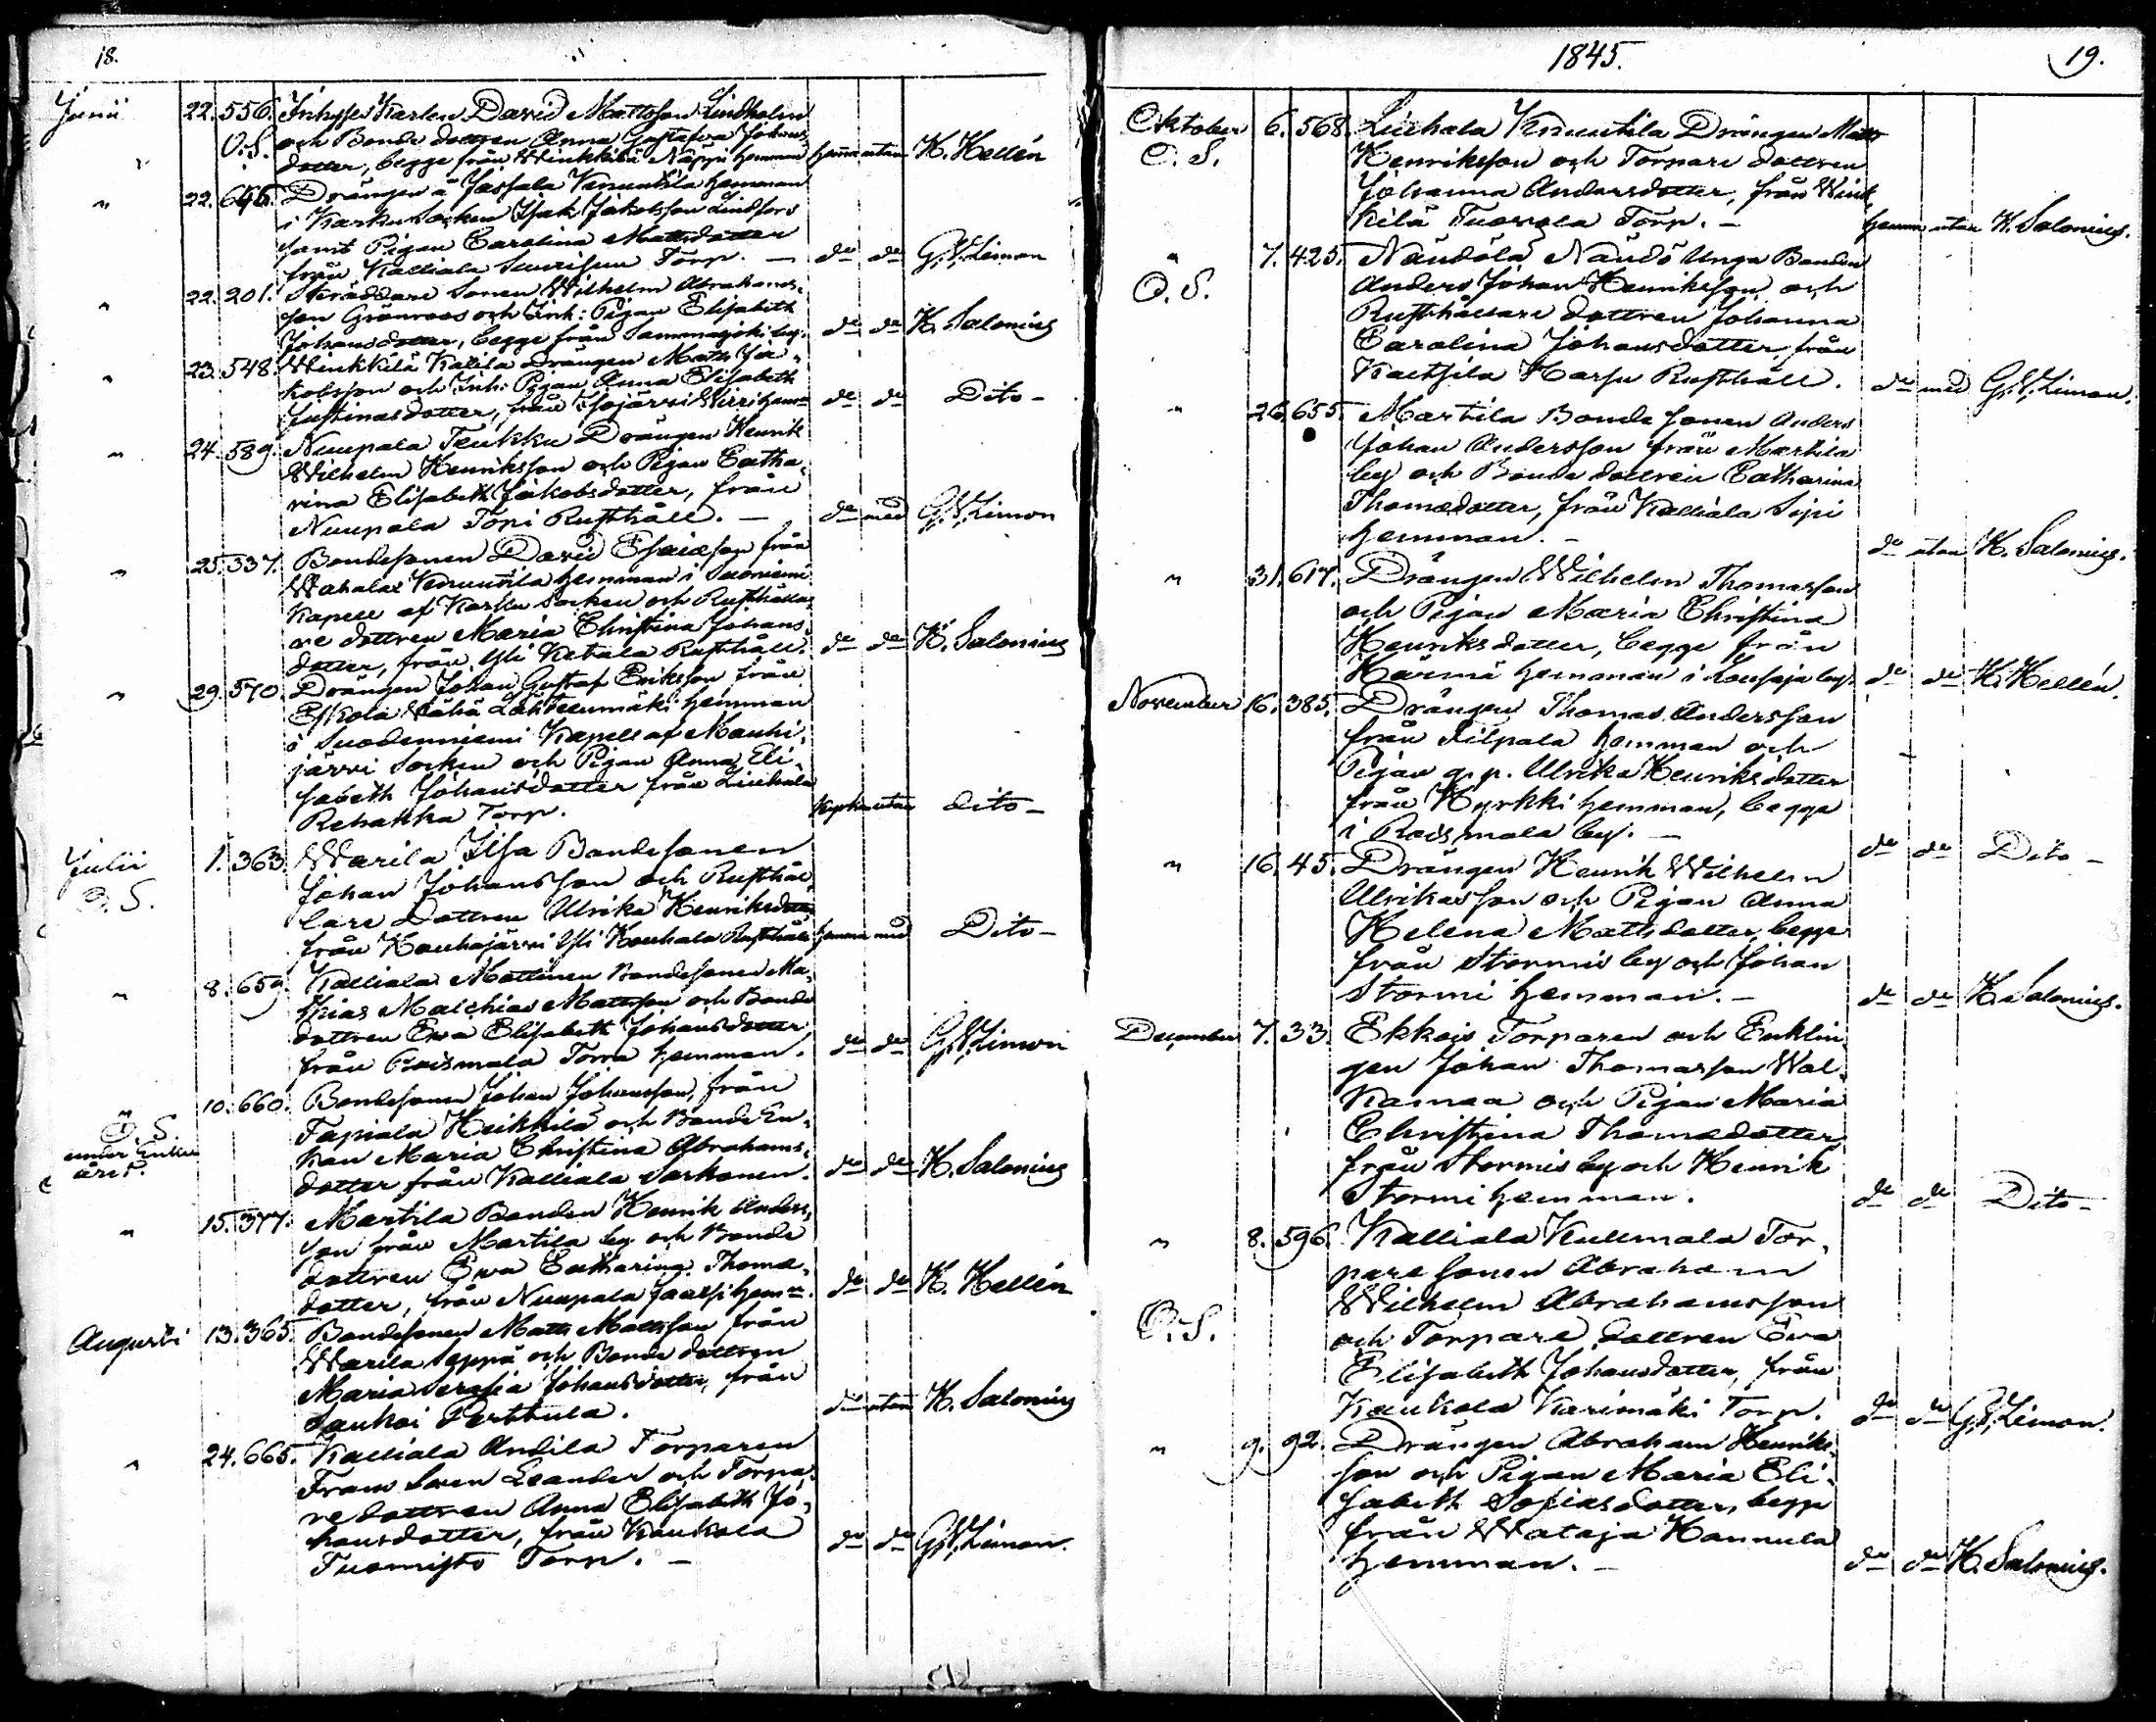 18.
Junii 22. 556. Inhyses Karlen David Mattsson Lindholm
O.S. och Bonde dottren Anna Gustafva Johans-
dotter, begge från Winkkilä Näppi hemman hemma utan K. Hellén
" 22. 646. Drängen å Jassala Knuutila hemman
i Karku Socken Isak Jakobsson Lindfors
samt Pigan Carolina Mattsdotter
från Kalliala Torp. — do do G.W. Limon
" 22. 201. Skräddare Sonen Wilhelm Abrahams-
son Grönroos och Inh: Pigan Elisabeth
Johansdotter, begge från Sammasjoki by. do do K. Salonius
" 23. 548. Winkkilä Kalila Drängen Matts Ja-
kobsson och Inh: Pigan Anna Elisabeth
Justinasdotter, från do do Dito -
" 24. 589. Nuupala Teukku Drängen Henrik
Wilhelm Henriksson och Pigan Catha-
rina Elisabeth Jakobsdotter, från
Nuupala Topi Rusthåll. — do med G.W. Limon
" 25. 337. Bondesonen David Esaiasson från
Wahalax Knuutila hemman i Suoniemi
Kapell af Karku Socken och Rusthålla-
re dottren Maria Christina Johans-
dotter, från Yli Ketala Rusthåll. do do K. Salonius
" 29. 570. Drängen Johan Gustaf Eriksson från
Eskola Wähä Lähteenmäki hemman
i Suodenniemi Kapell af Mouhi-
järvi Socken och Pigan Anna Eli-
sabeth Johansdotter från Liuhala
Rehakka Torp. utan dito -
Julii 1. 363. Warila Ilsa Bondesonen
O.S. Johan Johansson och Rusthål-
lare Dottren Ulrika Henriksdotter
från Houhajärvi Yli Houhala Rusthåll hemma med Dito -
" 8. 659. Kalliala Mattinen Bondesonen Ma-
thias Malchias Mattsson och Bonde
dottren Eva Elisabeth Johansdotter
från Roismala Torra hemman. do do G.W. Limon
" 10. 660. Bondesonen Johan Johansson, från
O.S. Tapiala Heikkilä och Bonde En-
under Enke kan Maria Christina Abrahams-
året. dotter från Kalliala Sarkonen. do do K. Salonius
" 15. 377. Martila Bonden Henrik Anders-
son från Martila by och Bonde
dottren Eva Catharina Thomæ-
dotter, från Nuupala Jaatsi hemn. do do K. Hellén
Augusti 13. 365. Bondesonen Matts Mattsson från
Warila Seppä och Bonde dottren
Maria Serafia Johansdotter, från
Saukoi Perttula. do utan K. Salonius
" 24. 665. Kalliala Andila Torparen
Frans Sven Leander och Torpa-
re dottren Anna Elisabeth Jo-
hansdotter, från Kaukola
Tuomisto Torp. — do do G.W. Limon.
1845. 19.
Oktober 6. 568. Liuhala Knuutila Drängen Matts
O.S. Henriksson och Torpare dottren
Johanna Andersdotter, från Wink-
kilä Tuorola Torp. — hemma utan K. Salonius.
" 7. 425. Näudölä Näudö Unga Bonden
O.S. Anders Johan Henriksson och
Rusthållare dottren Johanna
Carolina Johansdotter, från
Kaltsila Harju Rusthåll. do med G.W. Limon.
" 26. 655. Martila Bonde Sonen Anders
Johan Andersson från Martila
by och Bonde dottren Catharina
Thomædotter, från Kalliala Sipi
hemman. — do utan K. Salonius.
" 31. 617. Drängen Wilhelm Thomasson
och Pigan Maria Christina
Henriksdotter, begge från
Härmä hemman i Lousaja by. do do K. Hellén.
November 16. 385. Drängen Thomas Andersson
från Filpala hemman och
Pigan q.p. Ulrika Henriksdotter
från Kyrkki hemman, begge
i Roismala by. — do do Dito -
" 16. 45. Drängen Henrik Wilhelm
Ulrikasson och Pigan Anna
Helena Mattsdotter, begge
från Stormis by och Johan
Stormi hemman. — do do K. Salonius.
December 7. 33. Ekkois Torparen och Enklin-
gen Johan Thomasson Wal-
kamaa och Pigan Maria
Christina Thomædotter
från Stormis by och Henrik
Stormi hemman. do do Dito -
" 8. 596. Kalliala Kullmala Tor-
pare Sonen Abraham
Wilhelm Abrahamsson
O.S. och Torpare dottren Eva
Elisabeth Johansdotter, från
Kaukola Karimäki Torp. do do G.W. Limon.
" 9. 92. Drängen Abraham Henriks-
son och Pigan Maria Eli-
sabeth Sofiasdotter, begge
från Wataja Hannula
hemman. — do do K. Salonius.